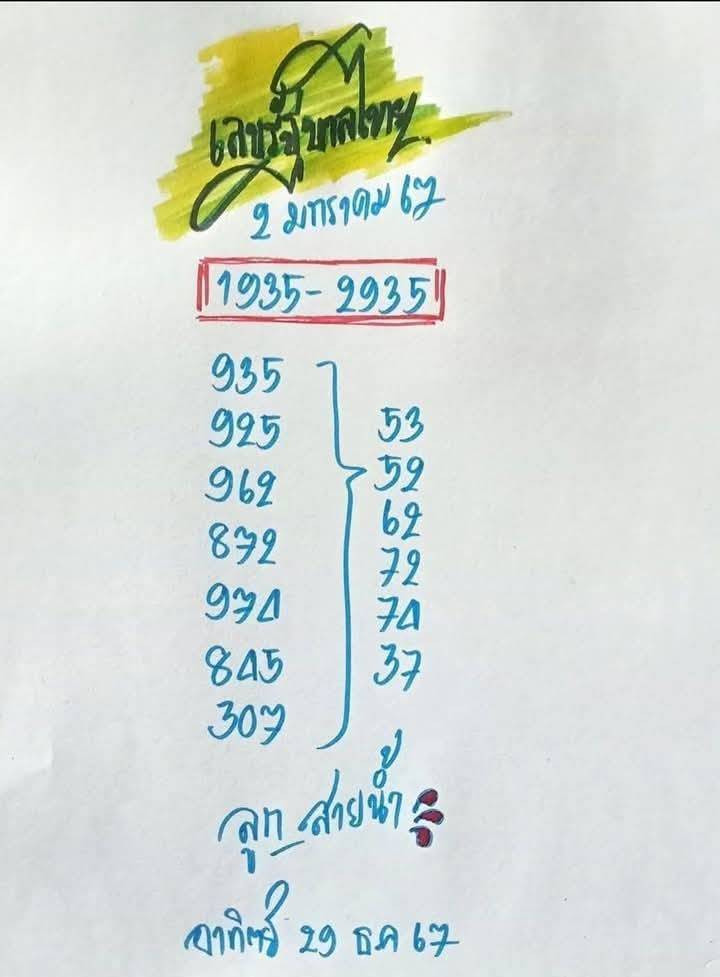 เลขรัฐบาลไทย
2 มกราคม 67
1935 - 2935
935
925
962
872
974
845
307
53
52
62
72
74
37
ลูก สายน้ำ
อาทิตย์ 29 ธค 67